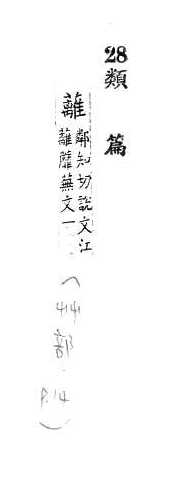 28類篇
蘺
鄰知切說文江
蘺蘼蕪文一
(艸部. P.14)